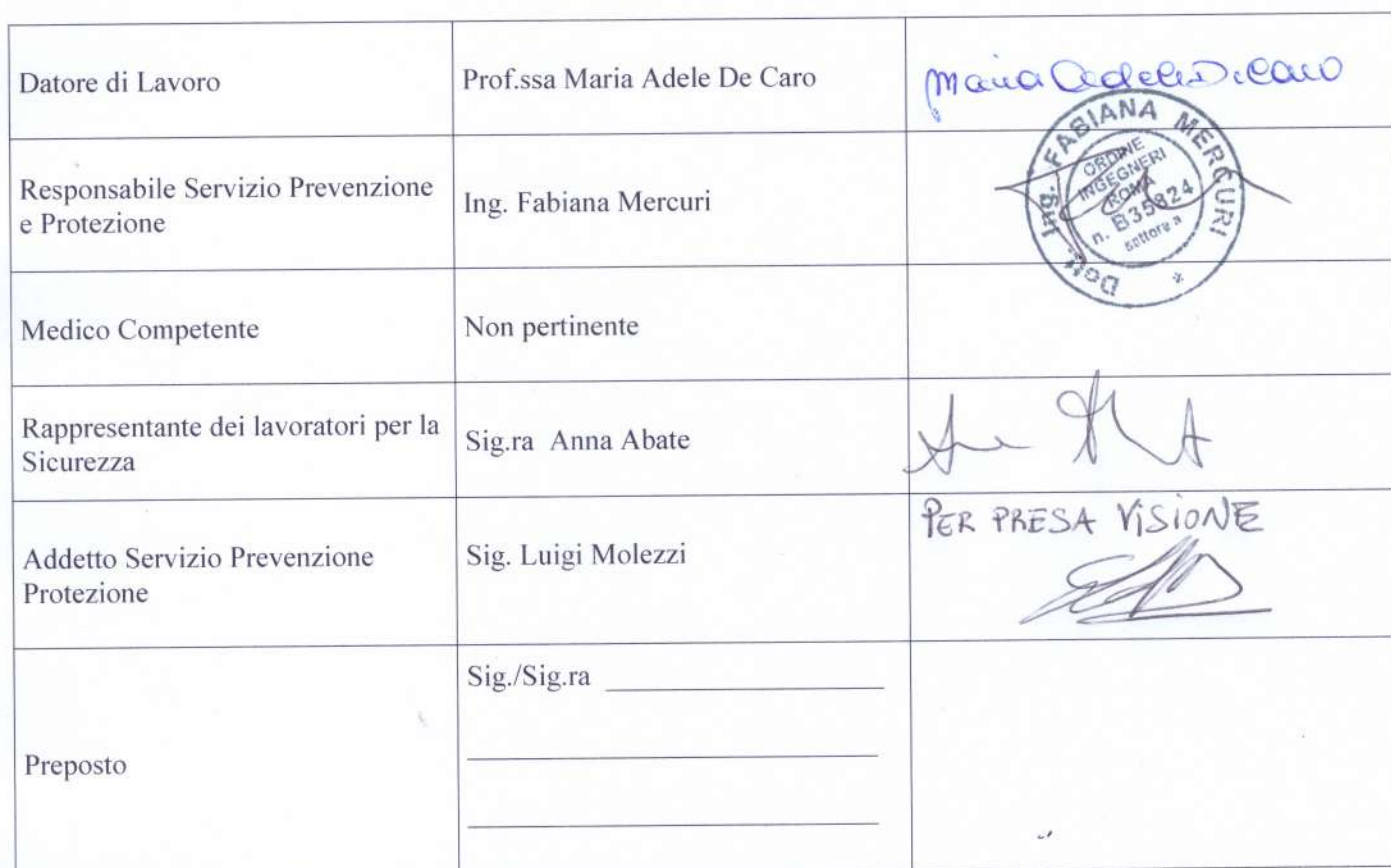 Datore di Lavoro
Prof.ssa Maria Adele De Caro
Maria Adele De Caro
Responsabile Servizio Prevenzione
e Protezione
Ing. Fabiana Mercuri
Dott. Ing. FABIANA MERCURI *
ORDINE
INGEGNERI
ROMA
n. B35824
settore a
Medico Competente
Non pertinente
Rappresentante dei lavoratori per la
Sicurezza
Sig.ra Anna Abate
Addetto Servizio Prevenzione
Protezione
Sig. Luigi Molezzi
PER PRESA VISIONE
Preposto
Sig./Sig.ra